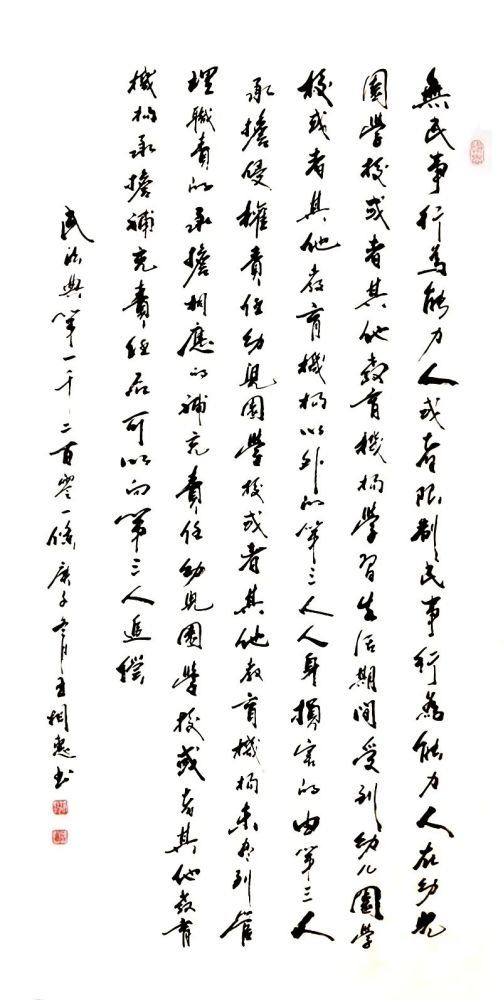 無民事行為能力人或者限制民事行為能力人在幼兒
園學校或者其他教育機構學習生活期間受到幼儿園學
校或者其他教育機構以外的第三人人身損害的由第三人
承擔侵權責任幼兒園學校或者其他教育機構未盡到管
理職責的承擔相應的補充責任幼兒園學校或者其他教育
機構承擔補充責任后可以向第三人追償
民法典第一千二百零一條庚子